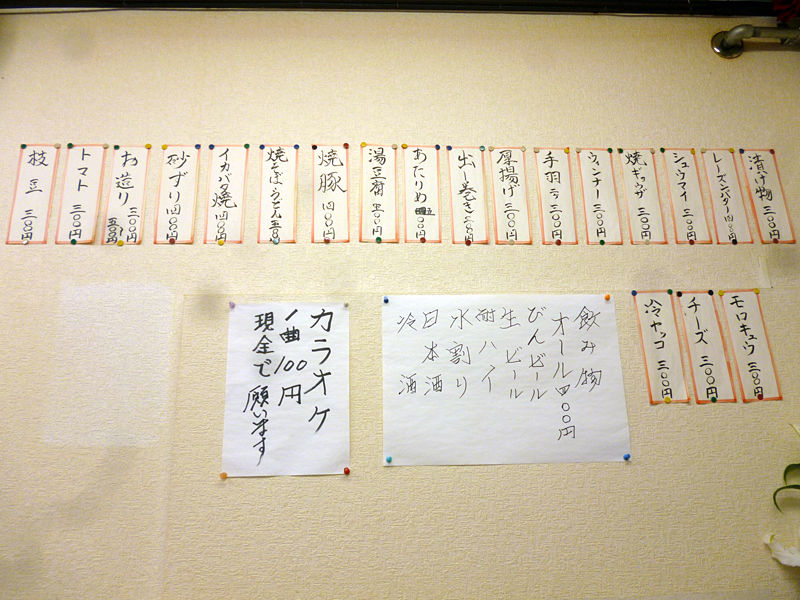 漬け物 三〇〇円
レーズンバター 四〇〇円
シュウマイ 三〇〇円
焼ギョウザ 三〇〇円
ウィンナー 三〇〇円
手羽二ヶ 三〇〇円
厚揚げ 三〇〇円
出し巻き
あたりめ
湯豆腐
焼豚 四〇〇円
焼そば・うどん
イカバタ焼 四〇〇円
砂ずり 四〇〇円
お造り 三〇〇円
五〇〇円
トマト 三〇〇円
枝豆 三〇〇円
モロキュウ 三〇〇円
チーズ 三〇〇円
冷ヤッコ 三〇〇円
飲み物
オール四〇〇円
びんビール
生ビール
酎ハイ
水割り
日本酒
冷酒
カラオケ
一曲100円
現金で
願います